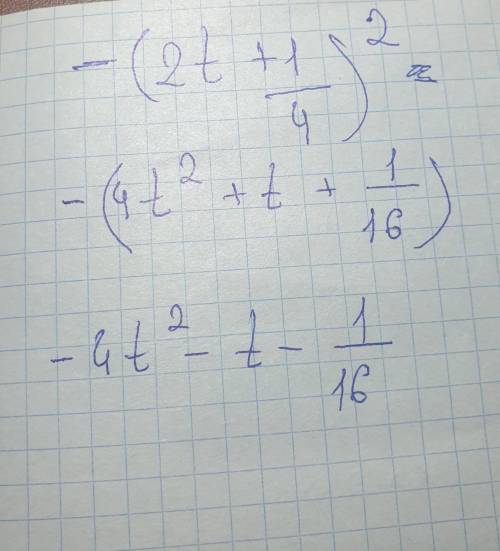 -(2t + 1/4)² =
-(4t² + t + 1/16)
-4t² - t - 1/16